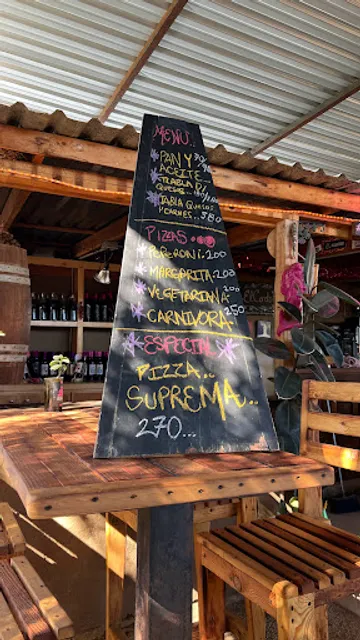 MENU..
PAN Y
ACEITE
TLABLA D/
QUESOS..
TABLA QUESOS
Y CARNES.. 580
PIZZAS
PEPERONI. 200
MARGARITA. 200
VEGETARIANA. 200
CARNIVORA. 250
ESPECIAL
PIZZA..
SUPREMA..
270...